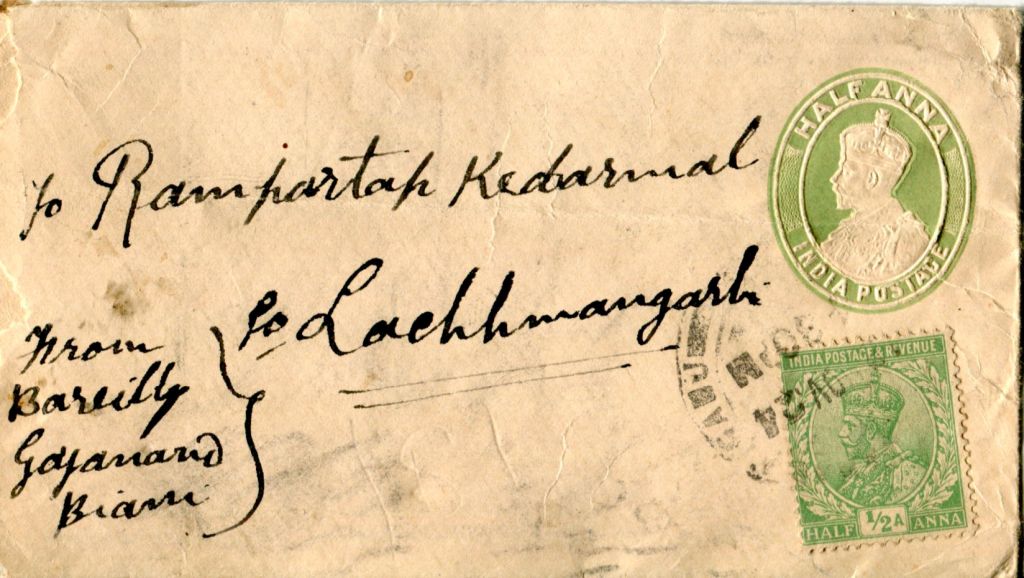 To Rampartap Kedarmal
Po Lachhmangarh
From
Bareilly
Gajanand
Biani
HALF ANNA
INDIA POSTAGE
INDIA POSTAGE & REVENUE
HALF 1/2A ANNA